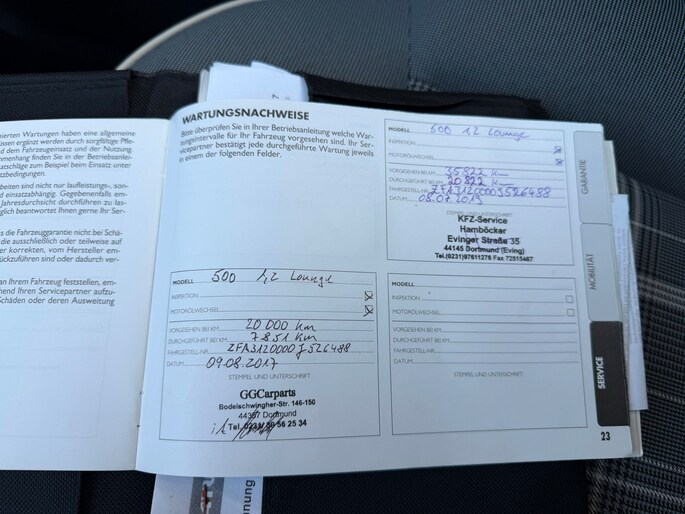 nierten Wartungen haben eine allgemeine
üssen ergänzt werden durch sorgfältige Pfle-
dem Fahrzeugeinsatz und der Nutzung.
mmenhang finden Sie in der Betriebsanlei-
atschläge zum Beispiel beim Einsatz unter
tzbedingungen.
beiten sind nicht nur laufleistungs-, son-
d einsatzabhängig. Gegebenenfalls em-
Jahresdurchsicht durchführen zu las-
glich beantwortet Ihnen gerne Ihr Ser-
s die Fahrzeuggarantie nicht bei Schä-
die ausschließlich oder teilweise auf
er korrekten, vom Hersteller em-
ückzuführen sind oder dadurch ver-
an Ihrem Fahrzeug feststellen, em-
hend Ihren Servicepartner aufzu-
Schäden oder deren Ausweitung
WARTUNGSNACHWEISE
Bitte überprüfen Sie in Ihrer Betriebsanleitung welche War-
tungsintervalle für Ihr Fahrzeug vorgesehen sind. Ihr Ser-
vicepartner bestätigt jede durchgeführte Wartung jeweils
in einem der folgenden Felder.
MODELL 500 1,2 Lounge
INSPEKTION
MOTORÖLWECHSEL
VORGESEHEN BEI KM 35822 km
DURCHGEFÜHRT BEI KM 20822 km
FAHRGESTELL-NR. ZFA3120000J526488
DATUM 08.07.2019
STEMPEL UND UNTERSCHRIFT
KFZ-Service
Hamböcker
Evinger Straße 35
44145 Dortmund (Eving)
Tel.(0231)97611276 Fax 72515467
MODELL 500 1,2 Lounge
INSPEKTION
MOTORÖLWECHSEL
VORGESEHEN BEI KM 20 000 km
DURCHGEFÜHRT BEI KM 7851 km
FAHRGESTELL-NR. ZFA3120000J526488
DATUM 09.08.2017
STEMPEL UND UNTERSCHRIFT
GGCarparts
Bodelschwingher-Str. 146-150
44357 Dortmund
Tel. 0231/ 56 25 34
MODELL
INSPEKTION
MOTORÖLWECHSEL
VORGESEHEN BEI KM
DURCHGEFÜHRT BEI KM
FAHRGESTELL-NR.
DATUM
STEMPEL UND UNTERSCHRIFT
GARANTIE
MOBILITÄT
SERVICE
23